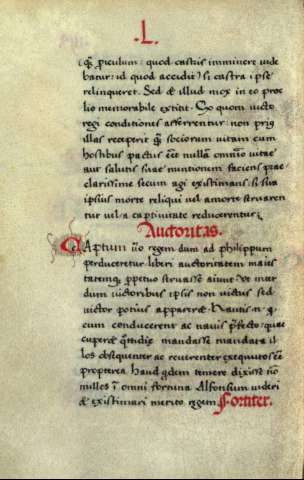 .L.
quod castris imminere vide
batur: id quod accidit) si castra ipse
relinqueret. Sed et illud mox in eo proe
lio memorabile extitit. Ex quom victo
regi conditiones afferrentur: non prius
illas receperit sociorum vitam cum
hostibus pactus nullam vitae
aut salutis suae mentionem faciens prae
clarissime secum agi existimans si sua
ipsius morte reliqui vel a morte servaren
tur vel a captivitate reducerentur
Auctoritas.
CAptum regem dum ad philippum
perduceretur liberi auctoritatem maies
tatemque servasse aiunt ut
dum victoribus ipsis non victus sed
victor potius Nautis
cum conducerent ac navis quae
cuperet mandasse mandata il
los obsequenter ac reverenter
propterea haud temere
milles omni fortuna Alfonsum videri
et existimari merito regem Fortiter.